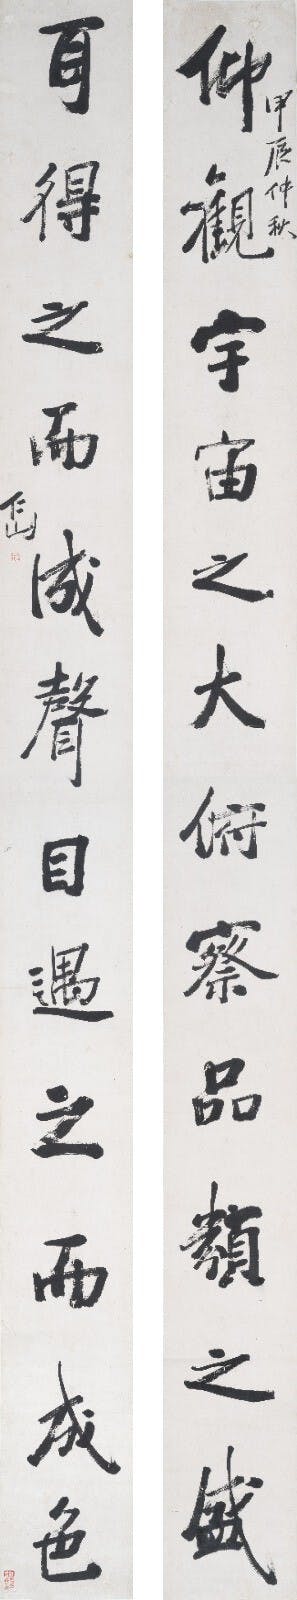 仰觀宇宙之大俯察品類之盛
甲辰仲秋
耳得之而成聲目遇之而成色